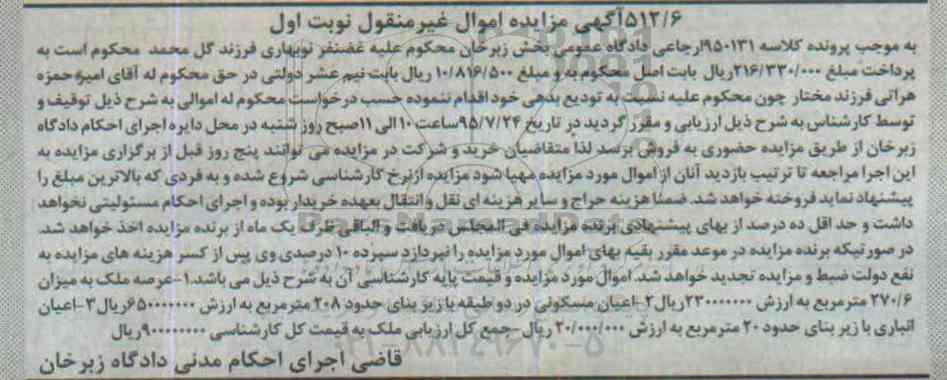 ۵۱۲/۶آگهی مزایده اموال غیرمنقول نوبت اول
به موجب پرونده کلاسه ۹۵۰۱۳۱ارجاعی دادگاه عمومی بخش زبرخان محکوم علیه غضنفر نوبهاری فرزند گل محمد محکوم است به
پرداخت مبلغ ۲۱۶/۳۳۰/۰۰۰ریال بابت اصل محکوم به و مبلغ ۱۰/۸۱۶/۵۰۰ ریال بابت نیم عشر دولتی در حق محکوم له آقای امیرحمزه
هراتی فرزند مختار چون محکوم علیه نسبت به تودیع بدهی خود اقدام ننموده حسب درخواست محکوم له اموالی به شرح ذیل توقیف و
توسط کارشناس به شرح ذیل ارزیابی و مقرر گردید در تاریخ ۹۵/۷/۲۴ساعت ۱۰ الی ۱۱صبح روز شنبه در محل دایره اجرای احکام دادگاه
زبرخان از طریق مزایده حضوری به فروش برسد لذا متقاضیان خرید و شرکت در مزایده می توانند پنج روز قبل از برگزاری مزایده به
این اجرا مراجعه تا ترتیب بازدید آنان از اموال مورد مزایده مهیا شود مزایده ازنرخ کارشناسی شروع شده و به فردی که بالاترین مبلغ را
پیشنهاد نماید فروخته خواهد شد. ضمنا هزینه حراج و سایر هزینه ای نقل و انتقال بعهده خریدار بوده و اجرای احکام مسئولیتی نخواهد
داشت و حد اقل ده درصد از بهای پیشنهادی برنده مزایده فی المجلس دریافت و الباقی ظرف یک ماه از برنده مزایده اخذ خواهد شد.
در صورتیکه برنده مزایده در موعد مقرر بقیه بهای اموال مورد مزایده را نپردازد سپرده ۱۰ درصدی وی پس از کسر هزینه های مزایده به
نفع دولت ضبط و مزایده تجدید خواهد شد. اموال مورد مزایده و قیمت پایه کارشناسی آن به شرح ذیل می باشد.۱-عرصه ملک به میزان
۲۷۰/۶ مترمربع به ارزش ۲۳۰۰۰۰۰۰۰ریال ۲-اعیان مسکونی در دو طبقه با زیر بنای حدود ۲۰۸ مترمربع به ارزش ۶۵۰۰۰۰۰۰۰ریال ۳-اعیان
انباری با زیر بنای حدود ۲۰ مترمربع به ارزش ۲۰/۰۰۰/۰۰۰ ریال-جمع کل ارزیابی ملک به قیمت کل کارشناسی ۹۰۰۰۰۰۰۰۰ریال
قاضی اجرای احکام مدنی دادگاه زبرخان
ParsNamadData
۰۲۱-۸۸۳۴۹۶۷۰-۵